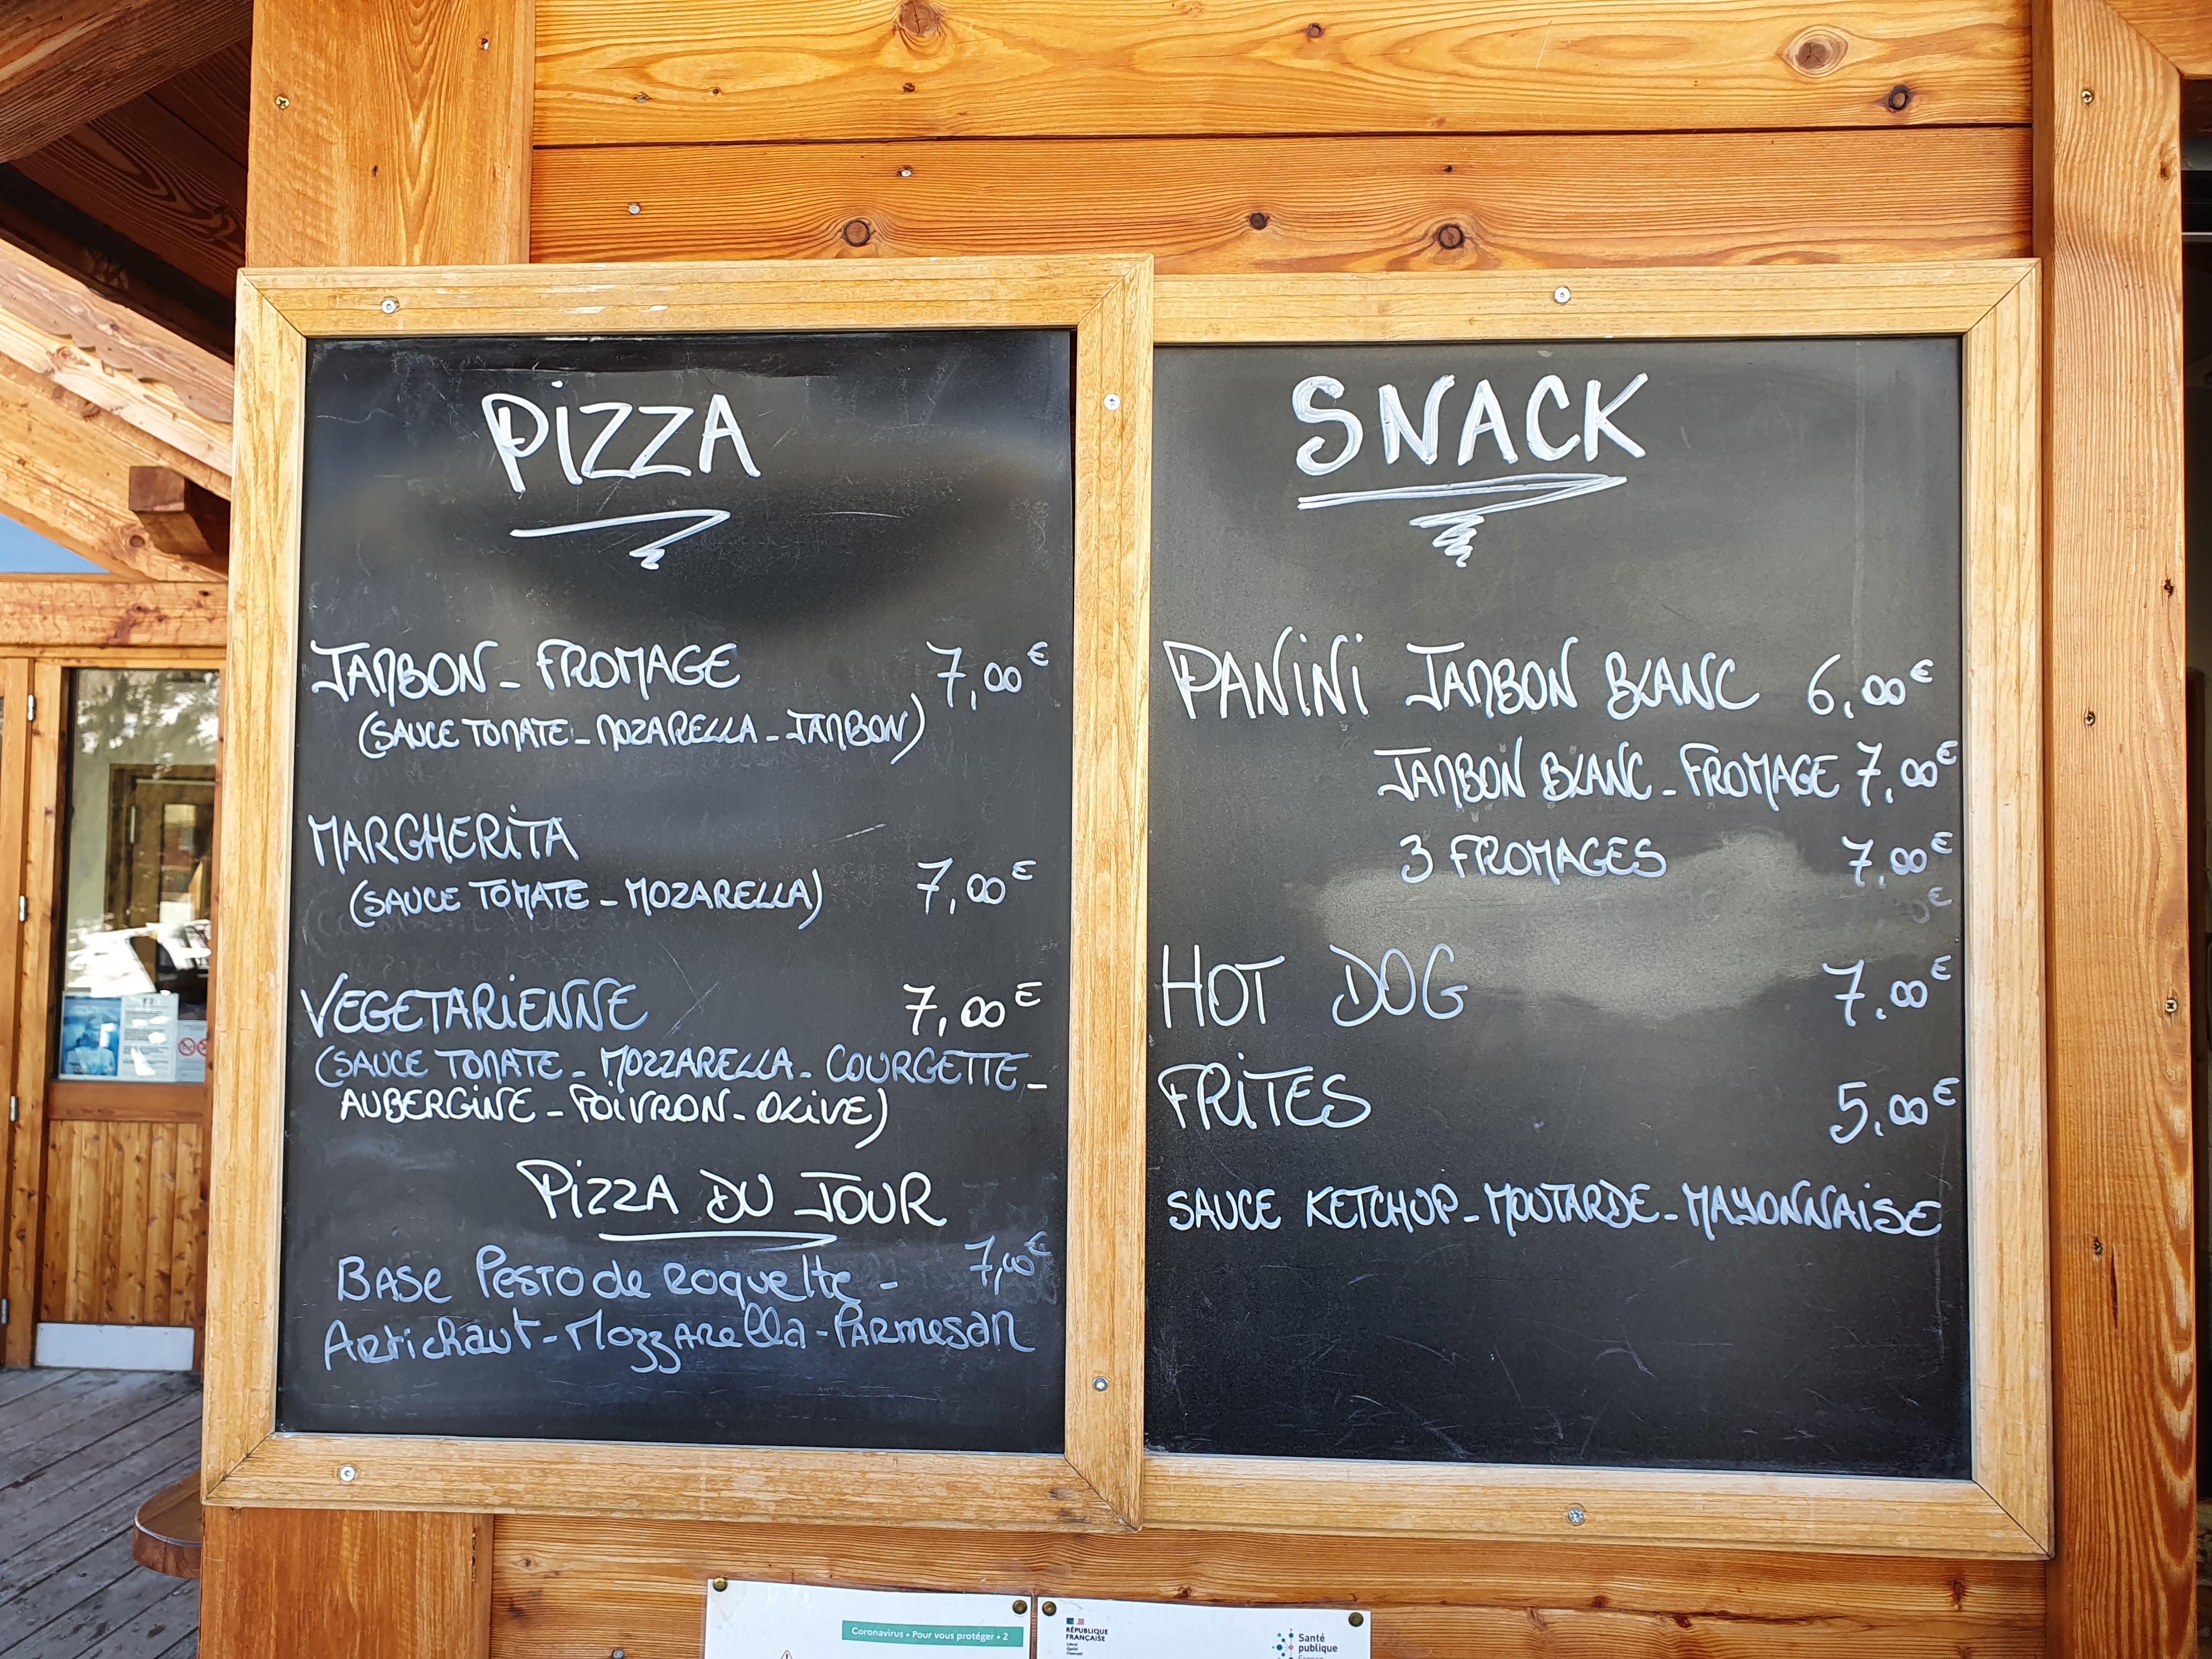 PIZZA
JAMBON - FROMAGE 7,00€
(SAUCE TOMATE - MOZARELLA - JAMBON)
MARGHERITA
(SAUCE TOMATE - MOZARELLA) 7,00€
VEGETARIENNE 7,00€
(SAUCE TOMATE - MOZZARELLA - COURGETTE -
AUBERGINE - POIVRON - OLIVE)
PIZZA DU JOUR
BASE PESTO de ROQUETTE - 7,00€
Artichaut - Mozzarella - Parmesan
SNACK
PANINI JAMBON BLANC 6,00€
JAMBON BLANC - FROMAGE 7,00€
3 FROMAGES 7,00€
HOT DOG 7,00€
FRITES 5,00€
SAUCE KETCHUP - MOUTARDE - MAYONNAISE
Coronavirus • Pour vous protéger • 2
RÉPUBLIQUE
FRANÇAISE
Santé
publique